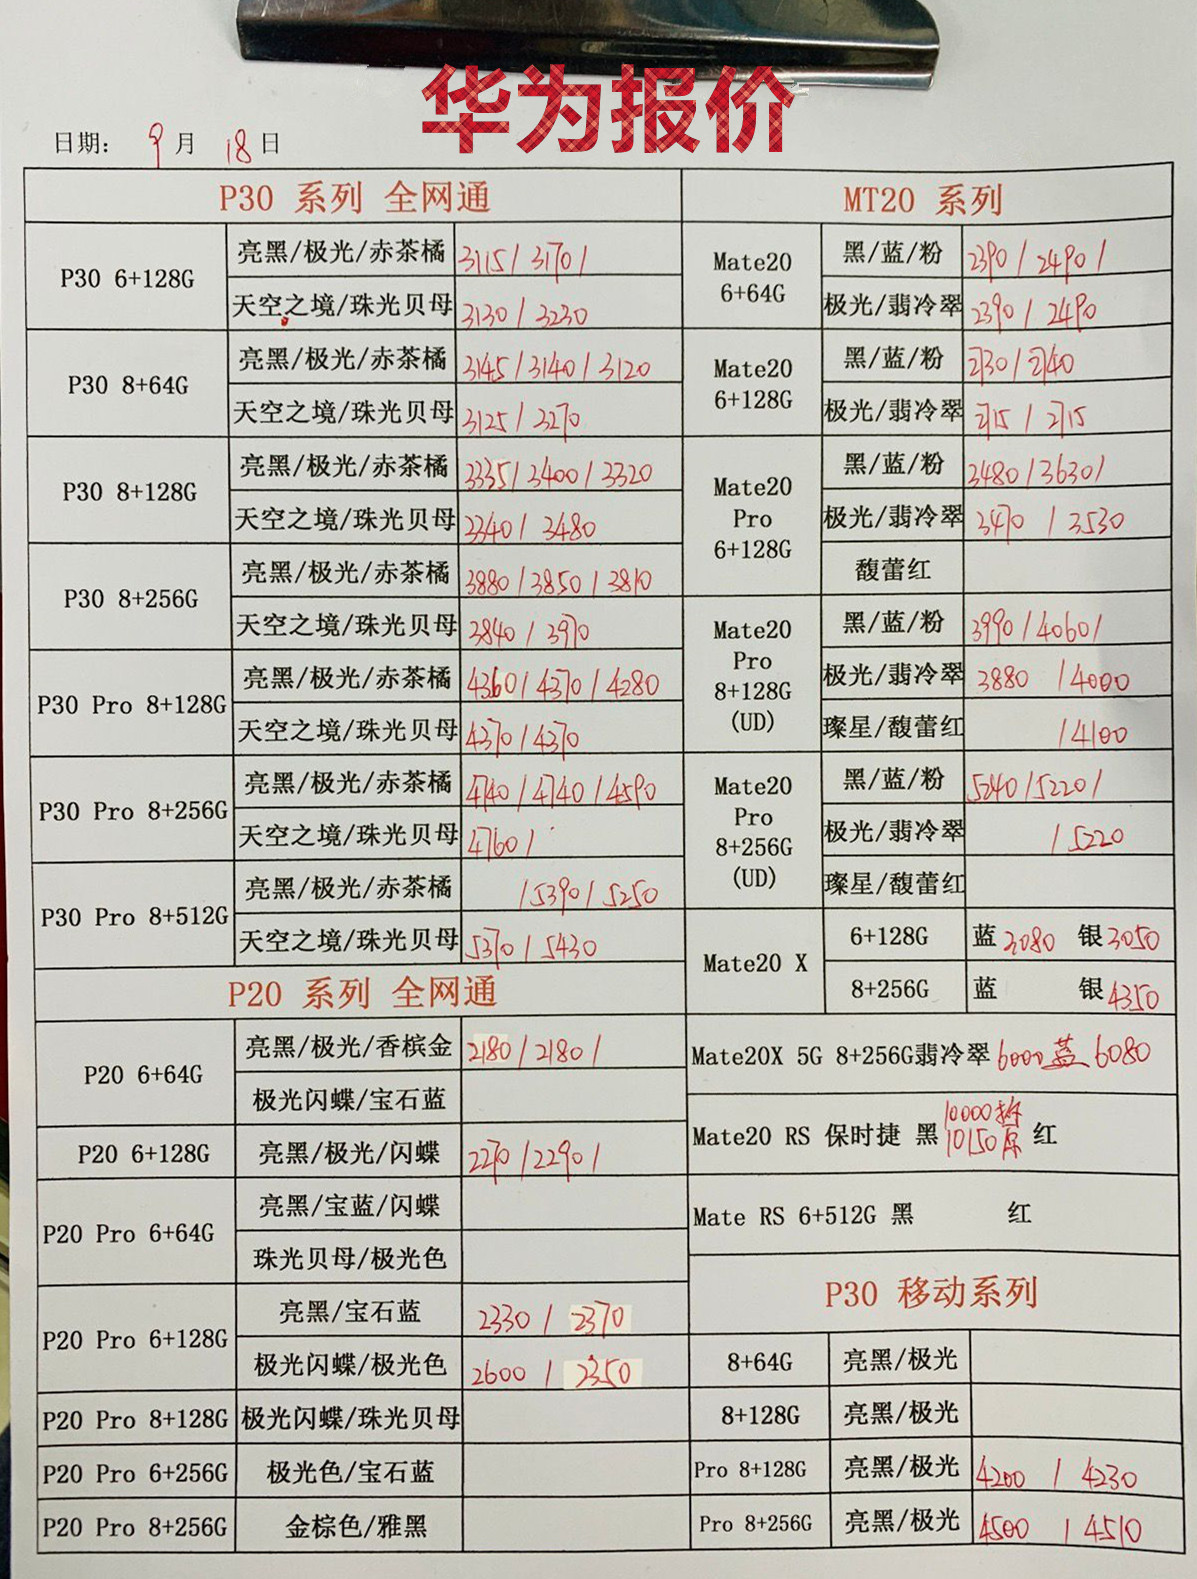 华为报价
日期： 9 月 18 日
P30 系列 全网通
P30 6+128G 亮黑/极光/赤茶橘 3115/3170/
天空之境/珠光贝母 3130/3230
P30 8+64G 亮黑/极光/赤茶橘 3145/3140/3120
天空之境/珠光贝母 3125/3270
P30 8+128G 亮黑/极光/赤茶橘 3335/3400/3320
天空之境/珠光贝母 3340/3480
P30 8+256G 亮黑/极光/赤茶橘 3880/3850/3810
天空之境/珠光贝母 3840/3970
P30 Pro 8+128G 亮黑/极光/赤茶橘 4360/4370/4280
天空之境/珠光贝母 4370/4370
P30 Pro 8+256G 亮黑/极光/赤茶橘 4740/4740/4590
天空之境/珠光贝母 4760/
P30 Pro 8+512G 亮黑/极光/赤茶橘 /5390/5250
天空之境/珠光贝母 5370/5430
P20 系列 全网通
P20 6+64G 亮黑/极光/香槟金 2180/2180/
极光闪蝶/宝石蓝
P20 6+128G 亮黑/极光/闪蝶 2270/2290/
P20 Pro 6+64G 亮黑/宝蓝/闪蝶
珠光贝母/极光色
P20 Pro 6+128G 亮黑/宝石蓝 2330/2370
极光闪蝶/极光色 2600/2350
P20 Pro 8+128G 极光闪蝶/珠光贝母
P20 Pro 6+256G 极光色/宝石蓝
P20 Pro 8+256G 金棕色/雅黑
MT20 系列
Mate20 6+64G 黑/蓝/粉 2390/2490/
极光/翡冷翠 2390/2490
Mate20 6+128G 黑/蓝/粉 2730/2740
极光/翡冷翠 2715/2715
Mate20 Pro 6+128G 黑/蓝/粉 3480/3630/
极光/翡冷翠 3470/3530
馥蕾红
Mate20 Pro 8+128G (UD) 黑/蓝/粉 3990/4060/
极光/翡冷翠 3880/4000
璨星/馥蕾红 /4100
Mate20 Pro 8+256G (UD) 黑/蓝/粉 5240/5220/
极光/翡冷翠 /5220
璨星/馥蕾红
Mate20 X 6+128G 蓝 3080 银 3050
8+256G 蓝 银 4350
Mate20X 5G 8+256G翡冷翠 6000 蓝 6080
Mate20 RS 保时捷 黑 10000拆 10150原 红
Mate RS 6+512G 黑 红
P30 移动系列
8+64G 亮黑/极光
8+128G 亮黑/极光
Pro 8+128G 亮黑/极光 4200/4230
Pro 8+256G 亮黑/极光 4500/4510